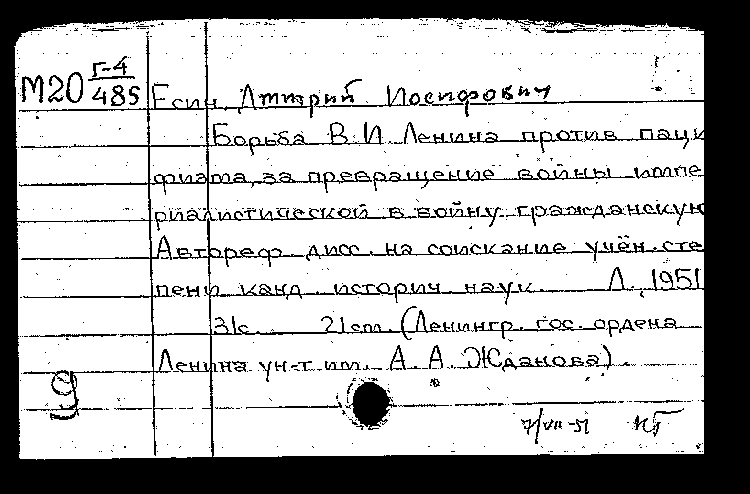 М20 Г-4/485 Есин, Дмитрий Иосифович
Борьба В.И. Ленина против паци
физма, за превращение войны импе
риалистической в войну гражданскую
Автореф. дисс. на соискание учён. сте
пени канд. историч. наук. Л., 1951
31с. 21cm. (Ленингр. гос. ордена
Ленина ун-т им. А. А. Жданова).
9
7/VII-51